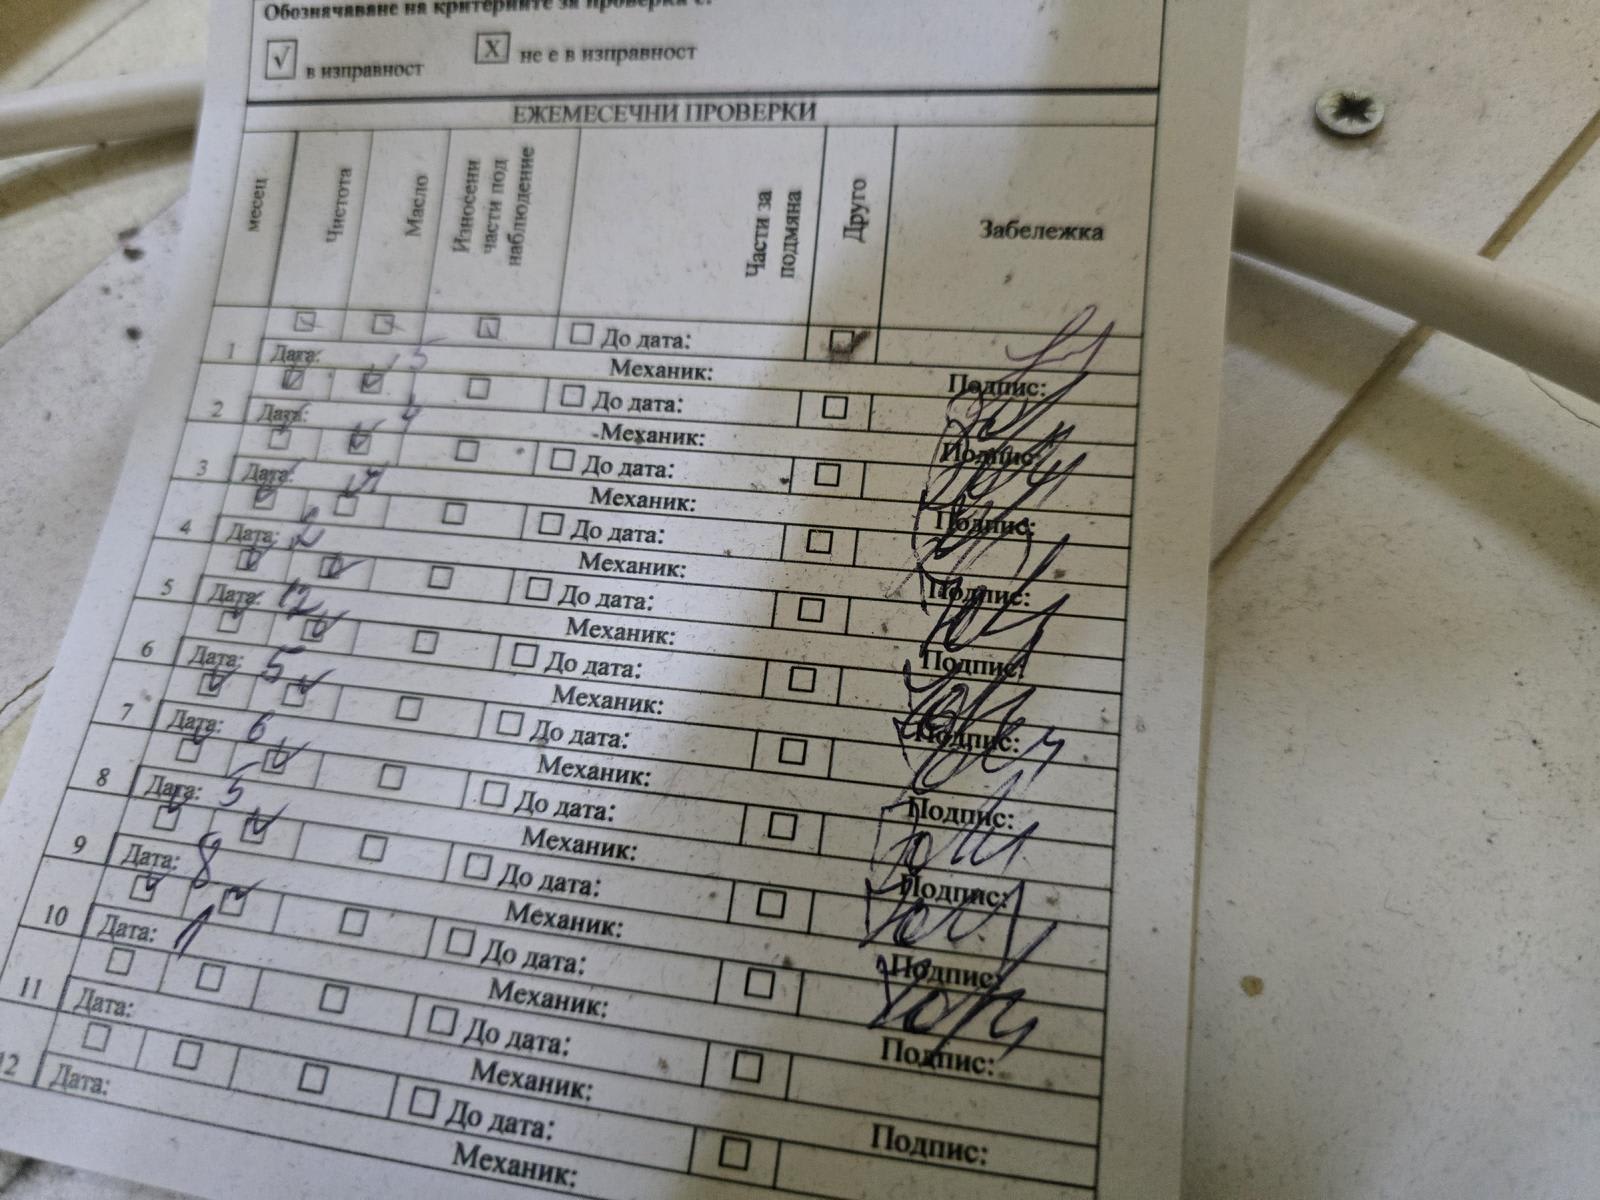 Обозначаване на критериите за проверка е:
√ в изправност X не е в изправност
ЕЖЕМЕСЕЧНИ ПРОВЕРКИ
месец Чистота Масло Износени части под наблюдение Части за подмяна Друго Забележка
1 До дата:
Дата: 5 Механик: Подпис:
2 До дата:
Дата: 4 Механик: Подпис:
3 До дата:
Дата: Механик: Подпис:
4 До дата:
Дата: 2 Механик: Подпис:
5 До дата:
Дата: 12 Механик: Подпис:
6 До дата:
Дата: 5 Механик: Подпис:
7 До дата:
Дата: 6 Механик: Подпис:
8 До дата:
Дата: 5 Механик: Подпис:
9 До дата:
Дата: 8 Механик: Подпис:
10 До дата:
Дата: 1 Механик: Подпис:
11 До дата:
Дата: Механик: Подпис:
12 До дата:
Дата: Механик: